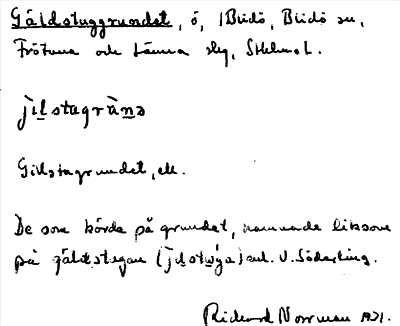 Gäldstuggrundet, ö, Blidö, Blidö sn,
Frötuna och Länna slg, Sthlms l.
jilstugrùnə
Gillstugrundet, ell.
De som körde på grundet, namnade liksom
på gäldstugan (jilstùga) enl. V. Söderling.
Richard Norrman 1931.